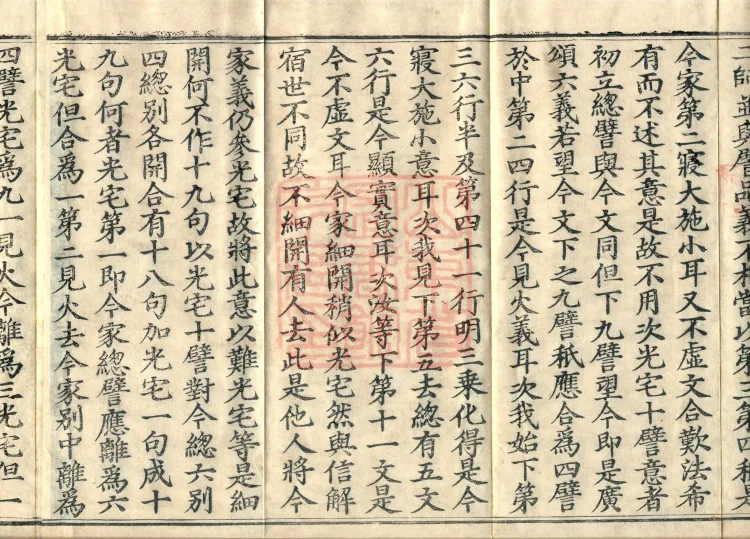 今家第二寢大施小耳又不虛文合歎法希
有而不述其意是故不用次光宅十譬意者
初立總譬與今文同但下九譬望今即是廣
頌六義若望今文下之九譬秖應合爲四譬
於中第二四行是今見火義耳次我始下第
三六行半及第四十一行明三乘化得是今
寢大施小意耳次我見下第五去總有五文
六行是今顯實意耳次汝等下第十一文是
今不虛文耳今家細開稍似光宅然與信解
宿世不同故不細開有人去此是他人將今
家義仍參光宅故將此意以難光宅等是細
開何不作十九句以光宅十譬對今總六別
四總別各開合有十八句加光宅一句成十
九句何者光宅第一即今家總譬應離爲六
光宅但合爲一第二見火去今家別中離爲
四譬光宅爲九一見火今離爲三光宅但一